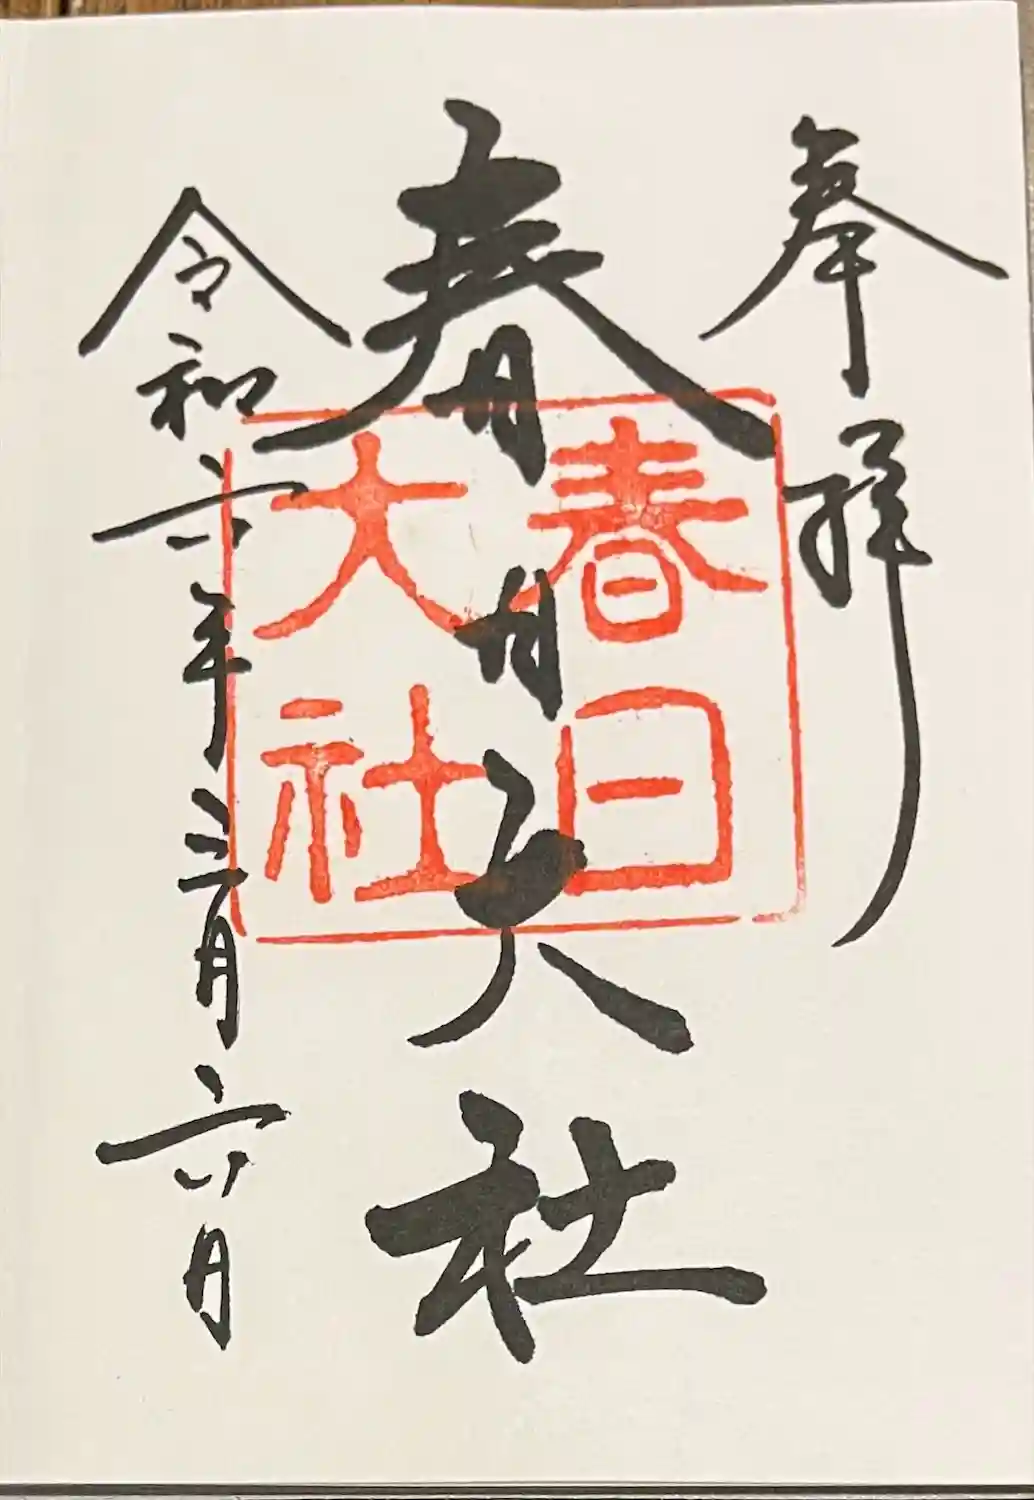 奉拝
春日大社
令和六年三月六日
春日
大社